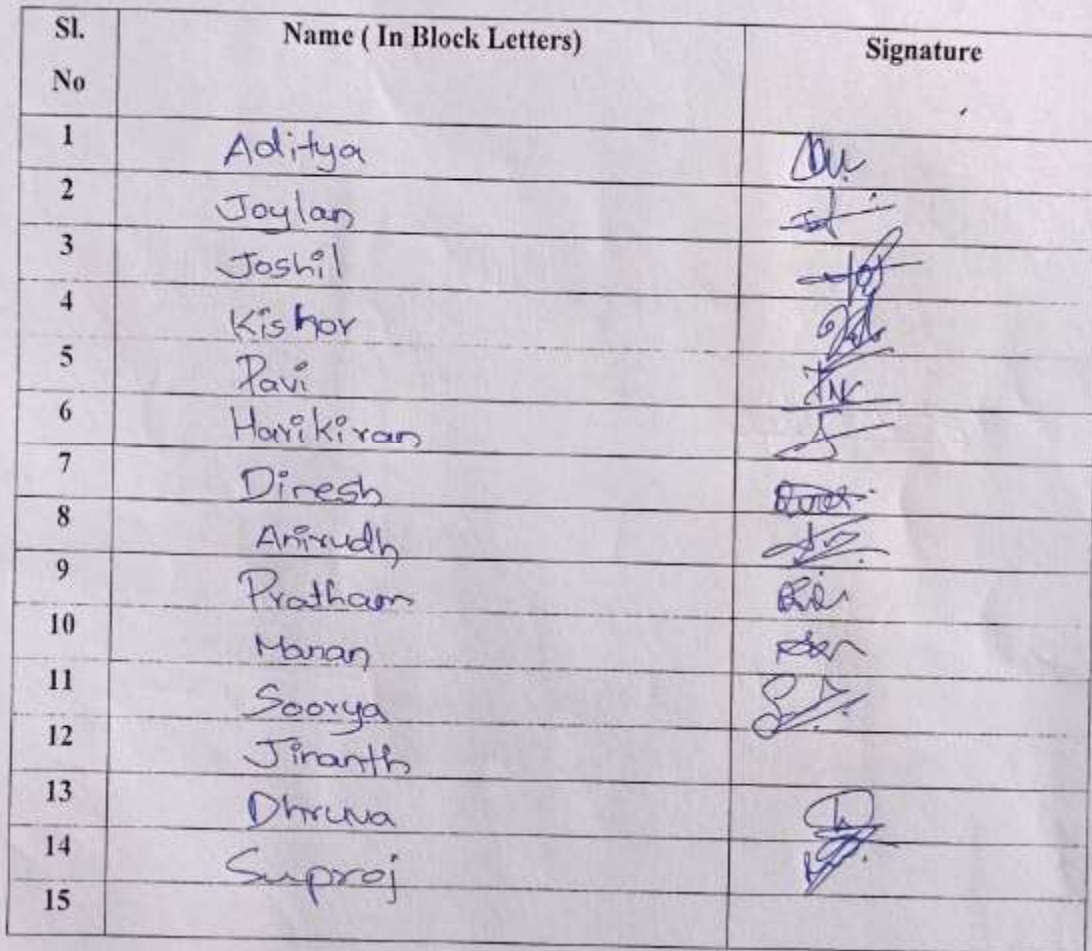 Sl. No Name ( In Block Letters) Signature
1 Aditya
2 Joylan
3 Joshil
4 Kishor
5 Pavi
6 Harikiran
7 Diresh
8 Anirudh
9 Pratham
10 Manan
11 Soorya
12 Jinanth
13 Dhruva
14 Suproj
15